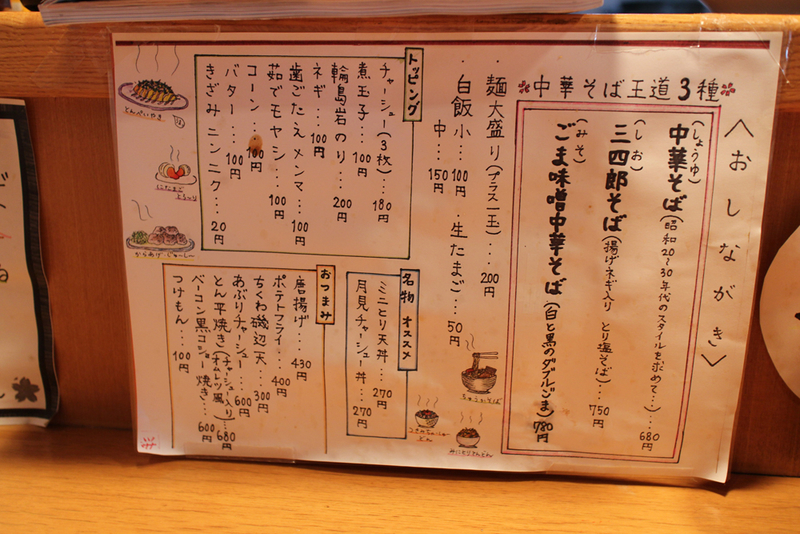 〈おしながき〉
中華そば王道3種
(しょうゆ)
中華そば(昭和20〜30年代のスタイルを求めて…)…680
(しお)
三四郎そば(揚げネギ入り とり塩そば)…750円
(みそ)
ごま味噌中華そば(白と黒のダブルごま)780円
・麺大盛り(プラス一玉)…200
・白飯 小…100円 生たまご…50円
中…150円
ちゅうかそば
トッピング
チャーシュー(3枚)…180
煮玉子…100円
輪島岩のり…200円
ネギ…100円
歯ごたえメンマ…100円
茹でモヤシ…100円
コーン…100円
バター…100円
きざみニンニク…20円
名物 オススメ
ミニとり天丼…270円
月見チャーシュー丼…270円
おつまみ
唐揚げ…430
ポテトフライ…400円
ちくわ磯辺天…300
あぶりチャーシュー…600円
とん平焼き(チャーシュー入りオムレツ風)…680
ベーコン黒コショー焼き…600円
つけもん…100円
とんぺいやき
からあげ